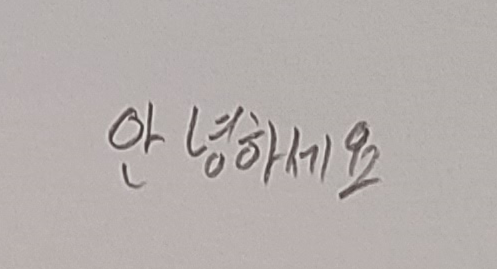 안녕하세요